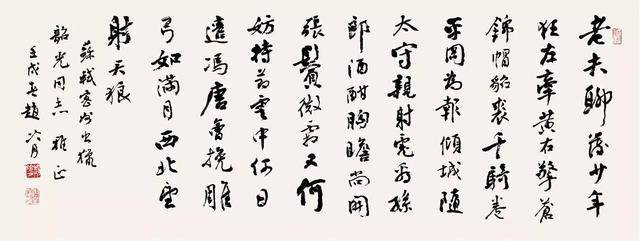 老夫聊發少年
狂左牽黃右擎蒼
錦帽貂裘千騎卷
平岡為報傾城隨
太守親射虎看孫
郎酒酣胸膽尚開
張鬢微霜又何
妨持節雲中何日
遣馮唐會挽雕
弓如滿月西北望
射天狼
蘇軾密州出獵
韶光同志雅正
壬戌春趙冷月